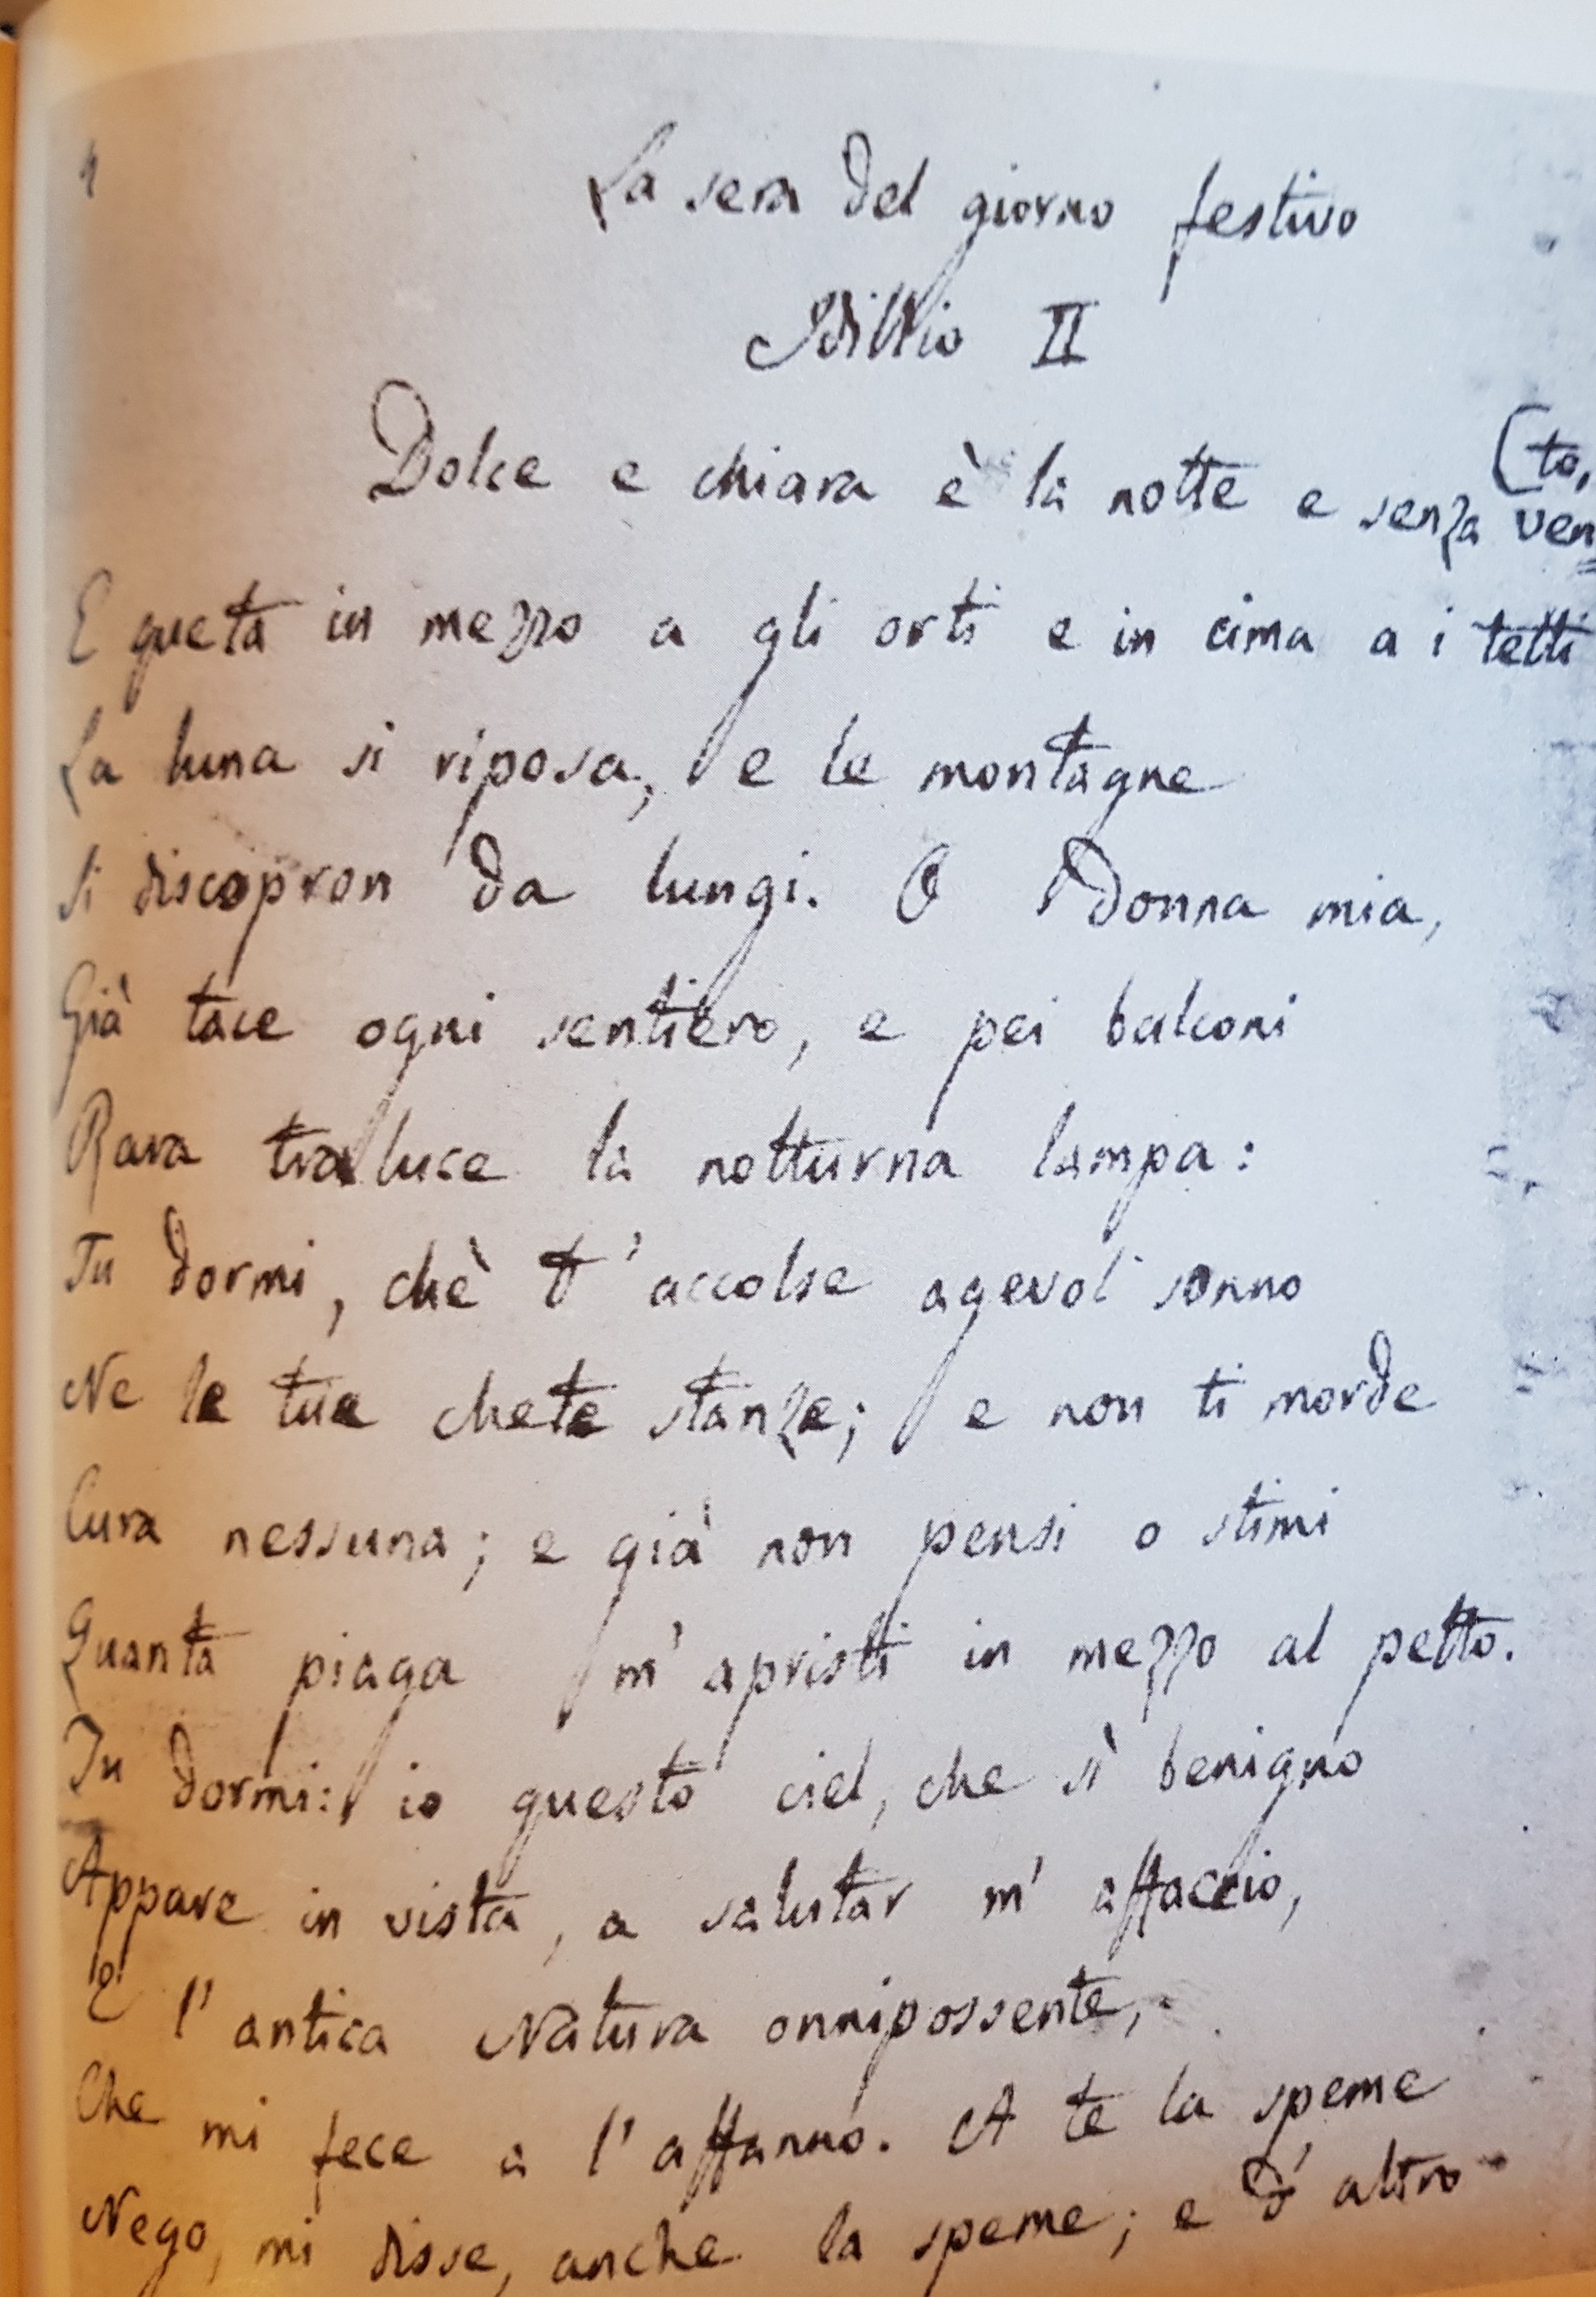 La sera del giorno festivo
Idillio II
(to,
Dolce e chiara è la notte e senza ven
E queta in mezzo a gli orti e in cima a i tetti
La luna si riposa, e le montagne
Si discopron da lungi. O Donna mia,
Già tace ogni sentiero, e pei balconi
Rara traluce la notturna lampa:
Tu dormi, chè t'accolse agevol sonno
Ne le tue chete stanze; e non ti morde
Cura nessuna; e già non pensi o stimi
Quanta piaga m'apristi in mezzo al petto.
Tu dormi: io questo ciel, che sì benigno
Appare in vista, a salutar m'affaccio,
E l'antica Natura onnipossente,
Che mi fece a l'affanno. A te la speme
Nego, mi disse, anche la speme; e d'altro